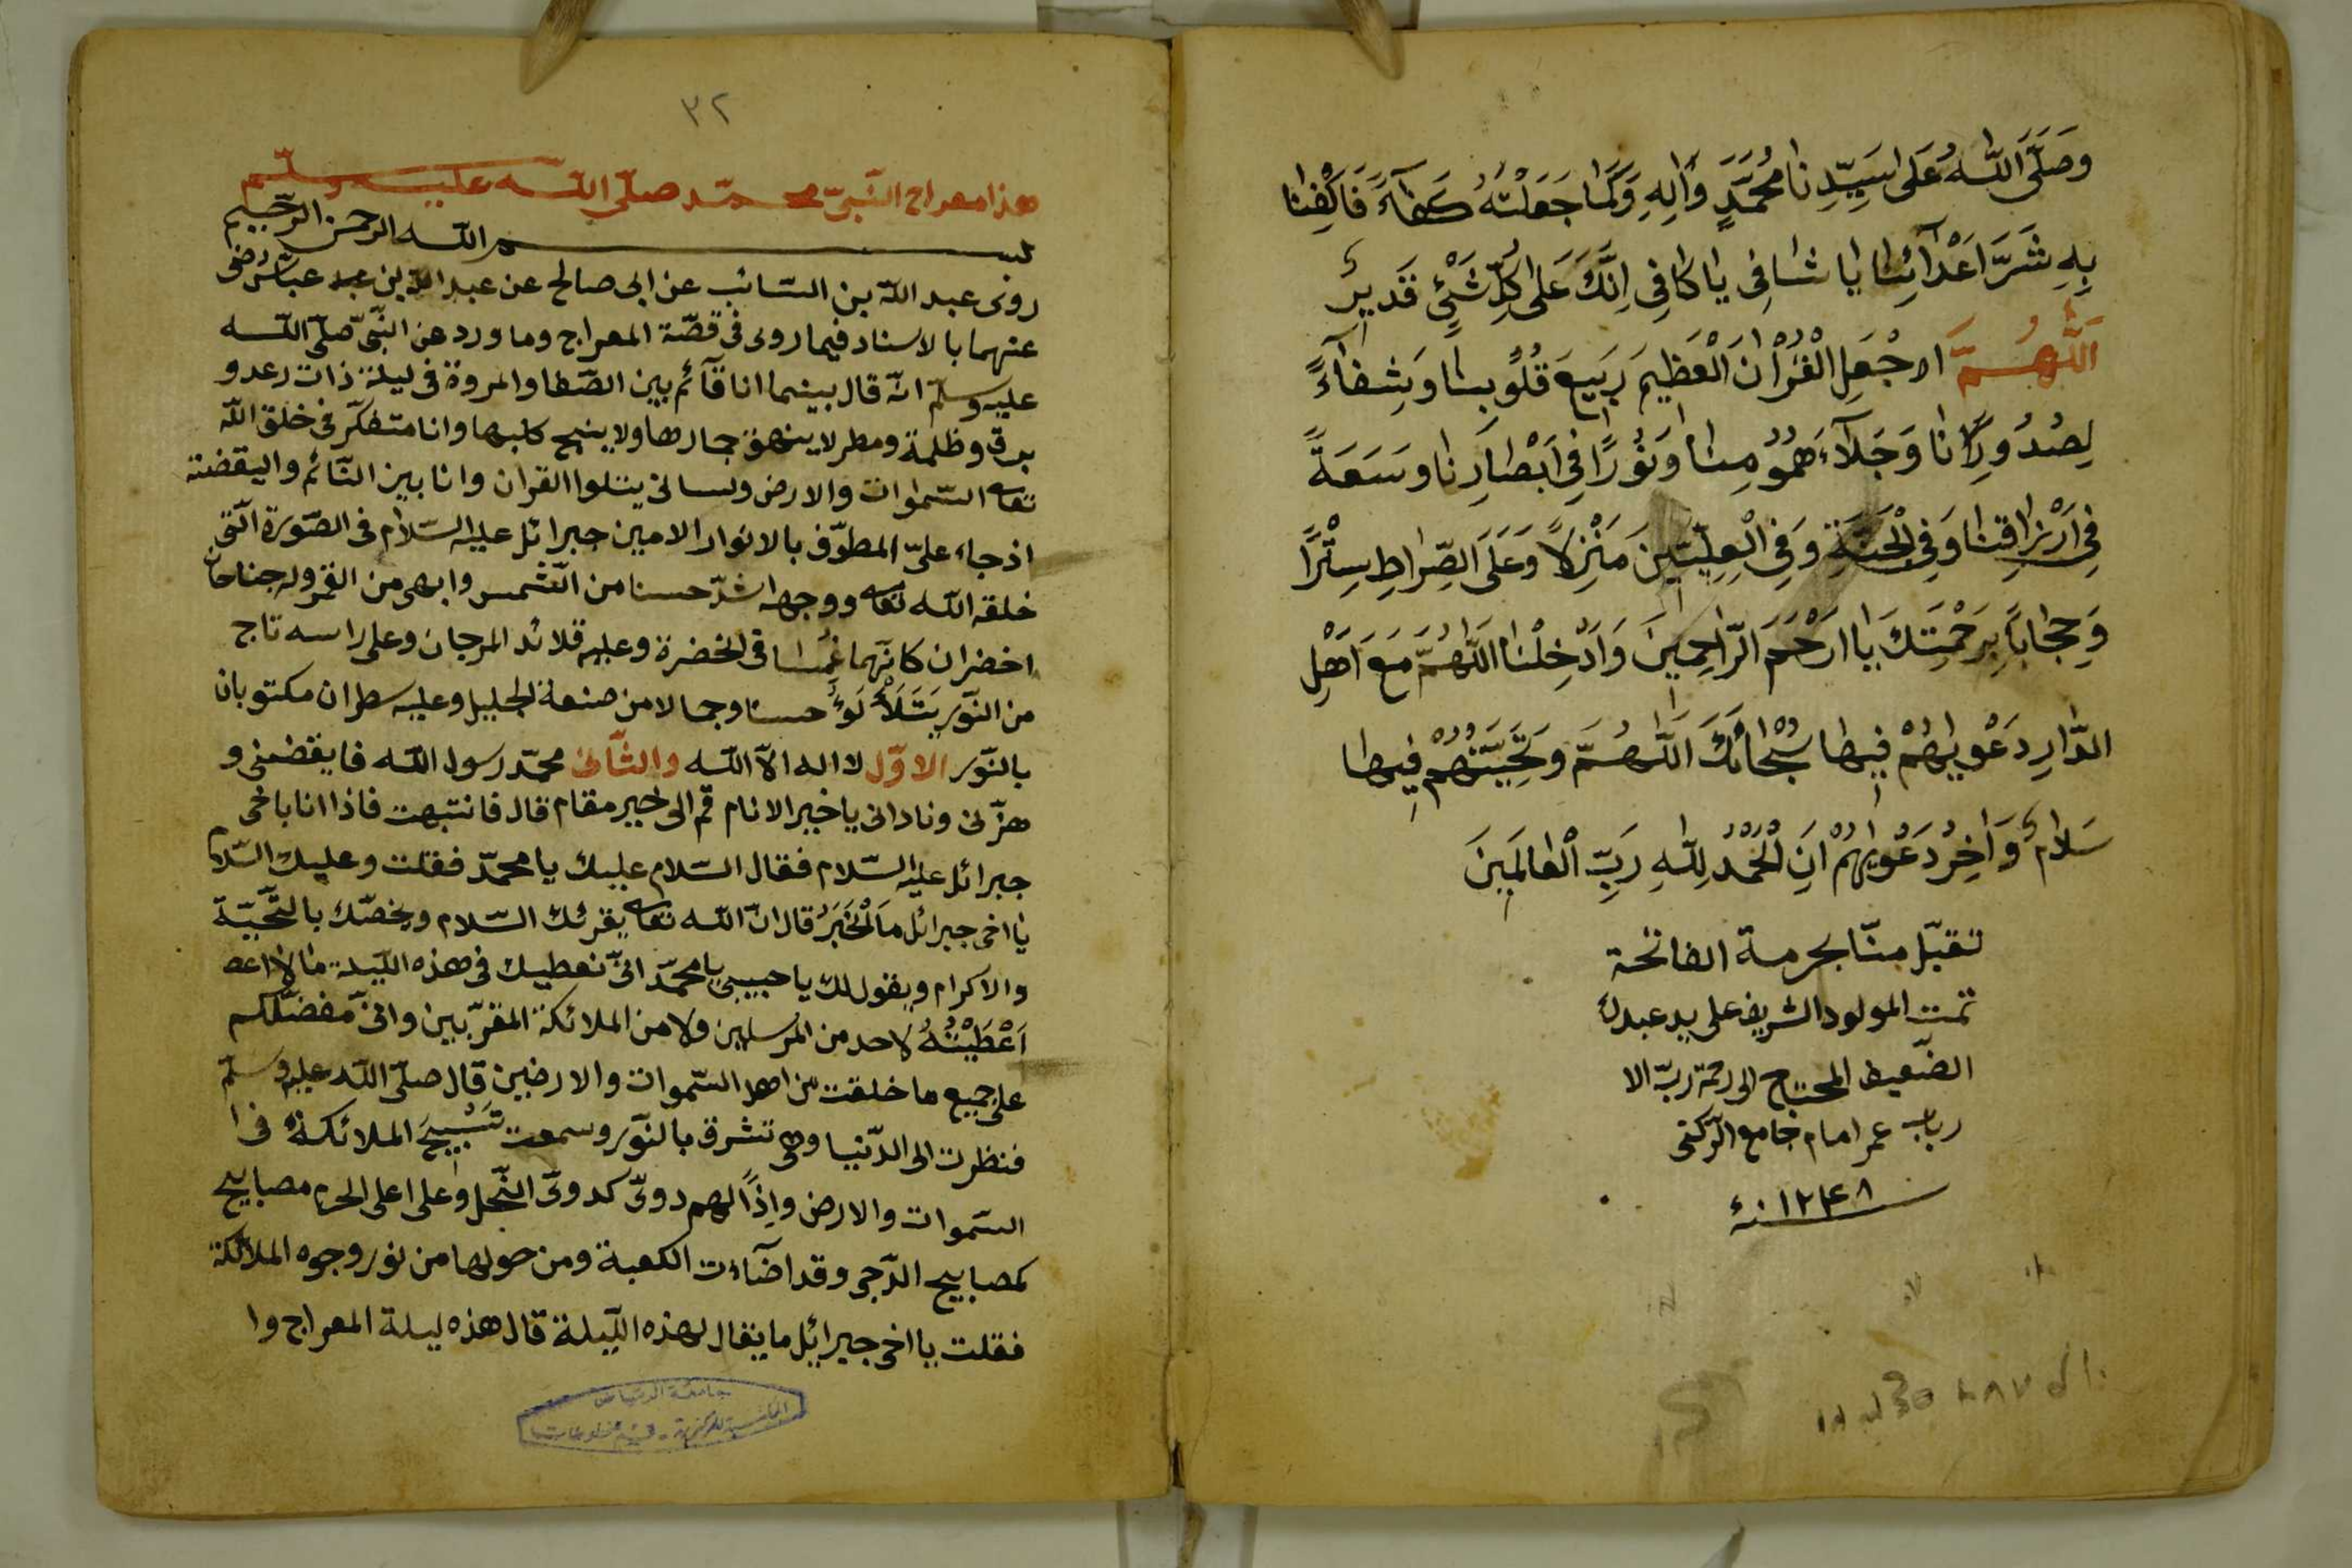 وَصَلَّى اللّٰهُ عَلَى سَيِّدِنَا مُحَمَّدٍ وَاٰلِهِ وَكَمَا جَعَلْتَهُ كَفَآءً فَاكْفِنَا
بِهِ شَرَّ اَعْدَآئِنَا يَا شَافِى يَا كَافِى اِنَّكَ عَلَى كُلِّ شَىْءٍ قَدِيرٌ
اَللّٰهُمَّ اجْعَلِ الْقُرْاٰنَ الْعَظِيمَ رَبِيعَ قُلُوبِنَا وَشِفَآءً
لِصُدُورِنَا وَجَلَآءَ هُمُومِنَا وَنُورًا فِى اَبْصَارِنَا وَسَعَةً
فِى اَرْزَاقِنَا وَفِى الْجَنَّةِ وَفِى الْعِلِّيِّينَ مَنْزِلًا وَعَلَى الصِّرَاطِ سِتْرًا
وَحِجَابًا بِرَحْمَتِكَ يَا اَرْحَمَ الرَّاحِمِينَ وَاَدْخِلْنَا اللّٰهُمَّ مَعَ اَهْلِ
الدَّارِ دَعْوٰيهُمْ فِيهَا سُبْحَانَكَ اللّٰهُمَّ وَتَحِيَّتُهُمْ فِيهَا
سَلَامٌ وَاٰخِرُ دَعْوٰيهُمْ اَنِ الْحَمْدُ لِلّٰهِ رَبِّ الْعَالَمِينَ
تقبّل منّا بحرمة الفاتحة
تمت المولود الشريف على يد عبدك
الضّعيف المحتاج الى رحمة ربّ الا
رباب عمر امام جامع
١٢٤٨ سنه
٣٢
هذا معراج النّبىّ محمّد صلّى اللّه عليه وسلّم
بسم اللّه الرحمن الرّحيم
روى عبد اللّه بن السّائب عن ابى صالح عن عبد اللّه بن عبّاس رضى
عنهما بالاسناد فيما روى فى قصّة المعراج وما ورد عن النّبىّ صلّى اللّه
عليه وسلّم انّه قال بينما انا قآئم بين الصّفا والمروة فى ليلة ذات رعد و
برق وظلمة ومطر لا ينهق حمارها ولا ينبح كلبها وانا متفكّر فى خلق اللّه
تعالى السّموات والارض ولسانى يتلوا القران وانا بين النّائم واليقضة
اذ جاء علىّ المطوّف بالانوار الامين جبرائل عليه السّلام فى الصّورة الّتى
خلقه اللّه تعالى ووجهه اشدّ حسنا من الشّمس وابهى من القمر وله جناحان
اخضران كانّهما غمسا فى الخضرة وعليه قلائد المرجان وعلى راسه تاج
من النّور يَتَلَأْلَؤُ حسنا وجمالا من صنعة الجليل وعليه سطران مكتوبان
بالنّور الاوّل لا اله الّا اللّه والثّانى محمّد رسول اللّه فايقضنى و
هزّنى ونادانى يا خير الانام قم الى خير مقام قال فانتبهت فاذا انا باخى
جبرائل عليه السّلام فقال السّلام عليك يا محمّد فقلت وعليك السّلام
يا اخى جبرائل مَا الْخَبَرُ قال انّ اللّه تعالى يقرئك السّلام ويخصّك بالتّحيّة
والاكرام ويقول لك يا حبيبى يا محمّد انّى نعطيك فى هذه اللّيلة ما لا اعط
اَعْطَيْتُهُ لاحد من المرسلين ولا من الملائكة المقرّبين وانّى مفضّلكم
على جميع ما خلقت من اهل السّموات والارضين قال صلّى اللّه عليه وسلّم
فنظرت الى الدّنيا وهى تشرق بالنّور وسمعت تَسْبِيحَ الملائكةُ فى ا
السّموات والارض وَاِذًا لهم دوىّ كدوىّ النّحل وعلى اعلى الحرم مصابيح
كمصابيح الدّجى وقد اضآءت الكعبة ومن حولها من نور وجوه الملائكة
فقلت يا اخى جبرائل ما يقال لهذه اللّيلة قال هذه ليلة المعراج وا
جامعة الرياض
المكتبة المركزية - قسم مخطوطات